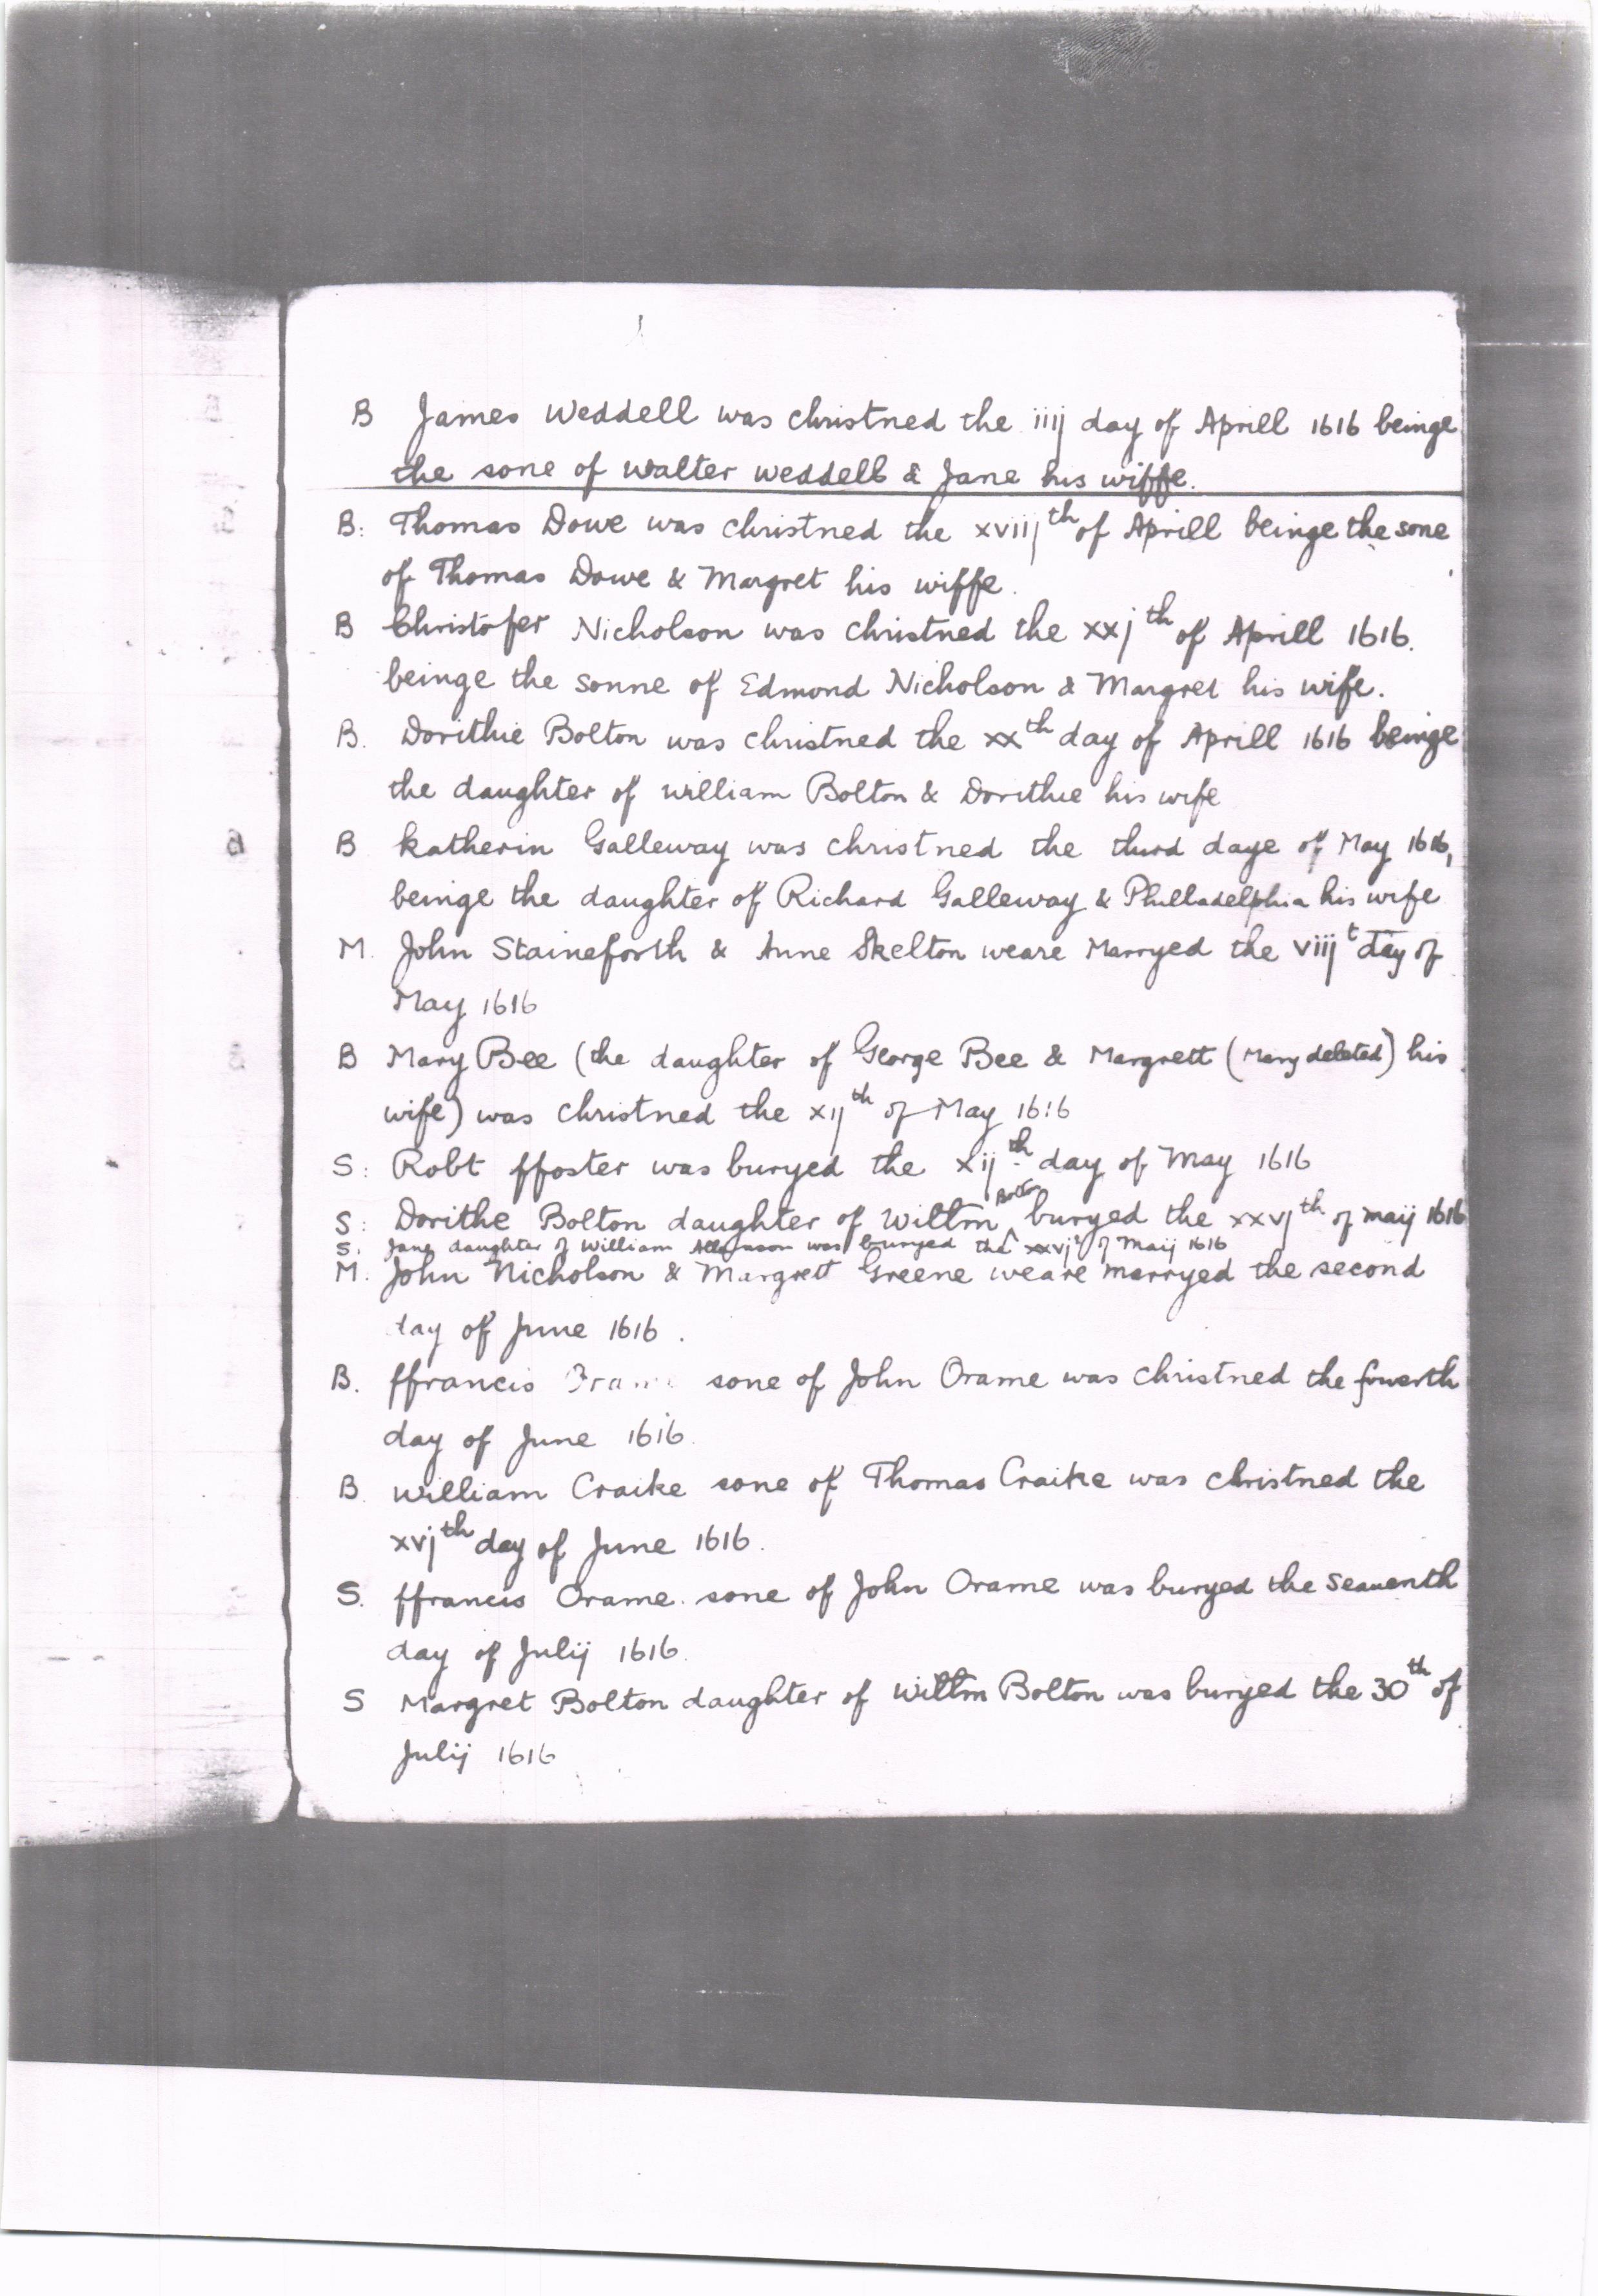 B James Weddell was christned the iiij day of Aprill 1616 beinge
the sone of Walter Weddell & Jane his wiffe.
B: Thomas Dowe was christned the xviijth of Aprill beinge the sone
of Thomas Dowe & Margret his wiffe.
B Christofer Nicholson was christned the xxjth of Aprill 1616.
beinge the sonne of Edmond Nicholson & Margret his wife.
B. Dorithie Bolton was christned the xxth day of Aprill 1616 beinge
the daughter of william Bolton & Dorithie his wife
B Katherin Galleway was christned the third daye of May 1616,
beinge the daughter of Richard Galleway & Philladelphia his wife
M. John Staineforth & Anne Skelton weare Marryed the viijt day of
May 1616
B Mary Bee (the daughter of George Bee & Margrett (Mary deleted) his
wife) was christned the xijth of May 1616
S: Robt ffoster was buryed the xijth day of May 1616
S: Dorithe Bolton daughter of Willm Bolton buryed the xxvjth of maij 1616
S. Jane daughter of William was buryed the xxvjt of Maij 1616
M. John Nicholson & Margrett Greene weare marryed the second
day of June 1616.
B. ffrancis sone of John Orame was christned the fowerth
day of June 1616.
B. William Craike sone of Thomas Craike was christned the
xvjth day of June 1616.
S. ffrancis Orame sone of John Orame was buryed the Seauenth
day of Julij 1616.
S Margret Bolton daughter of Willm Bolton was buryed the 30th of
Julij 1616